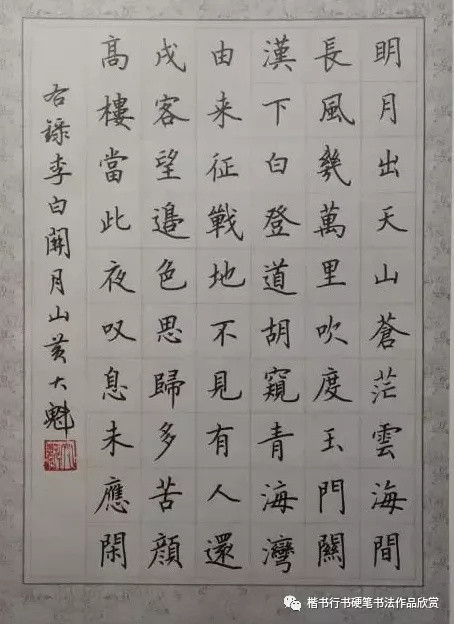 明月出天山蒼茫雲海間
長風幾萬里吹度玉門關
漢下白登道胡窺青海灣
由来征戰地不見有人還
戍客望邊色思歸多苦顔
髙樓當此夜叹息未應閑
右録李白関月山黄大魁
楷书行书硬笔书法作品欣赏